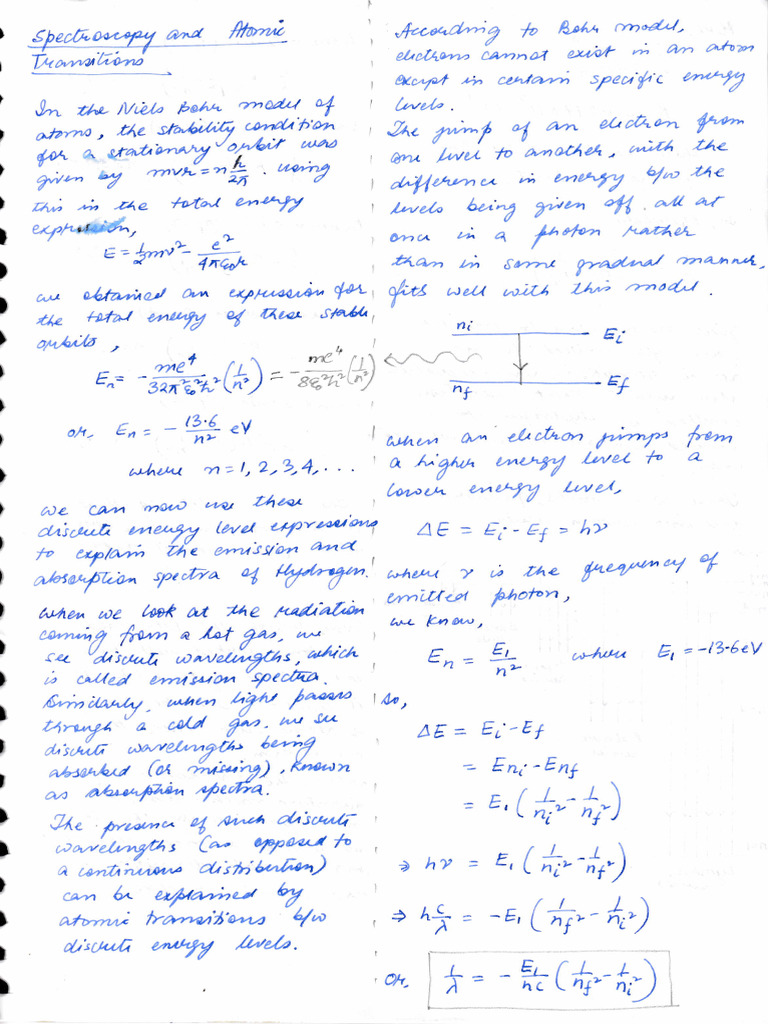 Spectroscopy and Atomic
Transitions
In the Niels Bohr model of
atoms, the stability condition
for a stationary orbit was
given by mvr = n h/2π. using
this in the total energy
expression,
E = 1/2 mv² - e²/4πε₀r
we obtained an expression for
the total energy of these stable
orbits,
Eₙ = - me⁴/32π²ε₀²ħ² (1/n²) = - me⁴/8ε₀²h² (1/n²)
or, Eₙ = - 13.6/n² eV
where n = 1, 2, 3, 4, ...
we can now use these
discrete energy level expressions
to explain the emission and
absorption spectra of Hydrogen.
when we look at the radiation
coming from a hot gas, we
see discrete wavelengths, which
is called emission spectra.
Similarly, when light passes
through a cold gas, we see
discrete wavelengths being
absorbed (or missing), known
as absorption spectra.
The presence of such discrete
wavelengths (as opposed to
a continuous distribution)
can be explained by
atomic transitions b/w
discrete energy levels.
According to Bohr model,
electrons cannot exist in an atom
except in certain specific energy
levels.
The jump of an electron from
one level to another, with the
difference in energy b/w the
levels being given off all at
once in a photon rather
than in some gradual manner,
fits well with this model.
nᵢ Eᵢ
n_f E_f
when an electron jumps from
a higher energy level to a
lower energy level,
ΔE = Eᵢ - E_f = hν
where ν is the frequency of
emitted photon,
we know,
Eₙ = E₁/n² where E₁ = -13.6 eV
so,
ΔE = Eᵢ - E_f
= Enᵢ - En_f
= E₁ (1/nᵢ² - 1/n_f²)
⇒ hν = E₁ (1/nᵢ² - 1/n_f²)
⇒ h c/λ = -E₁ (1/n_f² - 1/nᵢ²)
or, 1/λ = - E₁/hc (1/n_f² - 1/nᵢ²)